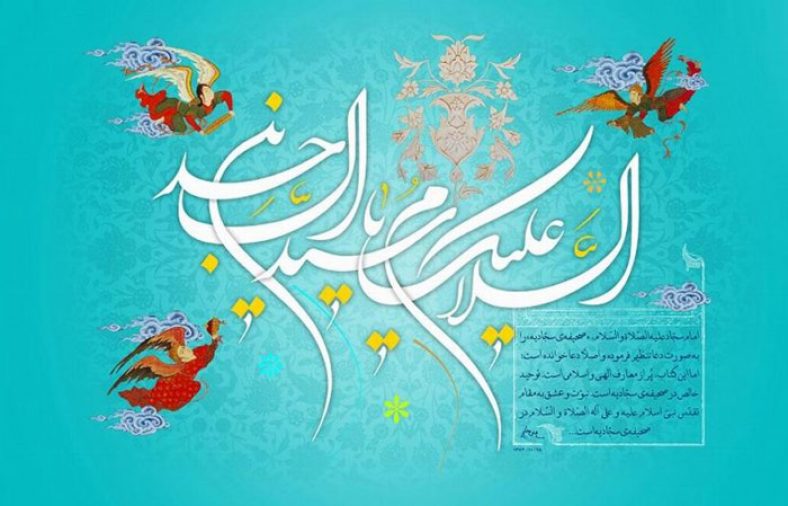 السلام علیک یا سید الساجدین
امام سجّاد علیه الصّلاة والسّلام، «صحیفه‌ی سجّادیه» را
به صورت دعا تنظیم فرموده و اصلاً دعا خوانده است؛
اما این کتاب، پُر از معارف الهی و اسلامی است. توحید
خالص در صحیفه‌ی سجّادیه است. نبوّت و عشق به مقام
تقدّس نبیّ اسلام علیه و علی آله الصّلاة و السّلام در
صحیفه‌ی سجّادیه است...